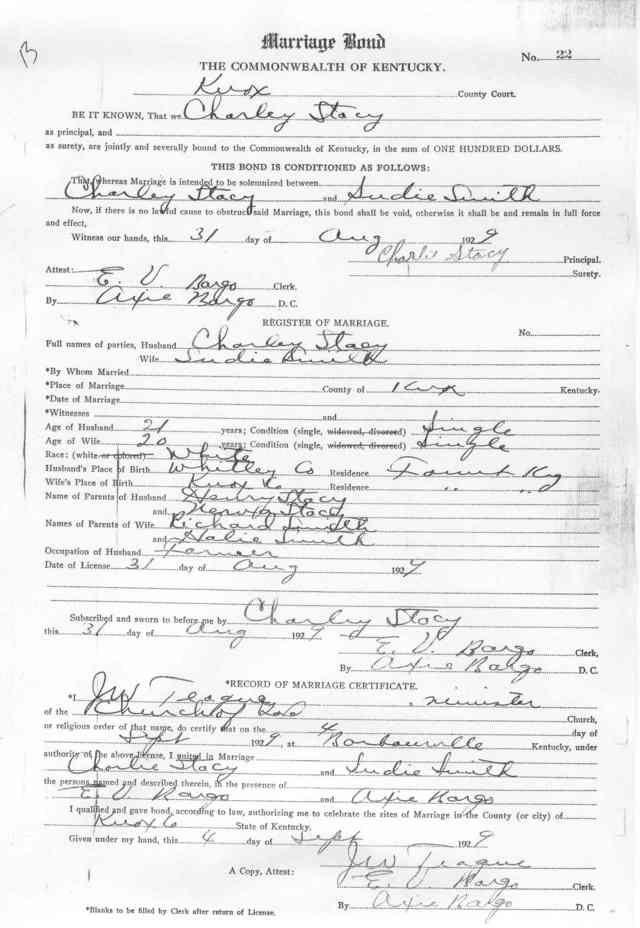 B
Marriage Bond
No. 22
THE COMMONWEALTH OF KENTUCKY.
Knox County Court.
BE IT KNOWN, That we Charley Stacy
as principal, and
as surety, are jointly and severally bound to the Commonwealth of Kentucky, in the sum of ONE HUNDRED DOLLARS.
THIS BOND IS CONDITIONED AS FOLLOWS:
That, whereas Marriage is intended to be solemnized between
Charley Stacy and Sudie Smith
Now, if there is no lawful cause to obstruct said Marriage, this bond shall be void, otherwise it shall be and remain in full force
and effect,
Witness our hands, this 31 day of Aug 1929
Charlie Stacy Principal.
Surety.
Attest: E. V. Bargo Clerk.
By Axie Bargo D. C.
REGISTER OF MARRIAGE.
No.
Full names of parties, Husband Charley Stacy
Wife Sudie Smith
*By Whom Married
*Place of Marriage County of Knox Kentucky.
*Date of Marriage
*Witnesses and
Age of Husband 21 years; Condition (single, widowed, divorced) Single
Age of Wife 20 years; Condition (single, widowed, divorced) Single
Race: (white or colored) White
Husband's Place of Birth Whitley Co Residence Ky
Wife's Place of Birth Knox Co Residence " "
Name of Parents of Husband Henry Stacy
and Stacy
Names of Parents of Wife Richard Smith
and Halie Smith
Occupation of Husband Farmer
Date of License 31 day of Aug 1929
Subscribed and sworn to before me by Charley Stacy
this 31 day of Aug 1929
E. V. Bargo Clerk,
By Axie Bargo D. C.
*RECORD OF MARRIAGE CERTIFICATE.
*I JW Teague, minister
of the Church of God Church,
or religious order of that name, do certify that on the 4 day of
Sept 1929, at Barbourville Kentucky, under
authority of the above license, I united in Marriage
Charlie Stacy and Sudie Smith
the persons named and described therein, in the presence of
E. V. Bargo and Axie Bargo
I qualified and gave bond, according to law, authorizing me to celebrate the rites of Marriage in the County (or city) of
Knox Co State of Kentucky.
Given under my hand, this 4 day of Sept 1929
JW Teague
A Copy, Attest: E. V. Bargo Clerk.
By Axie Bargo D. C.
*Blanks to be filled by Clerk after return of License.